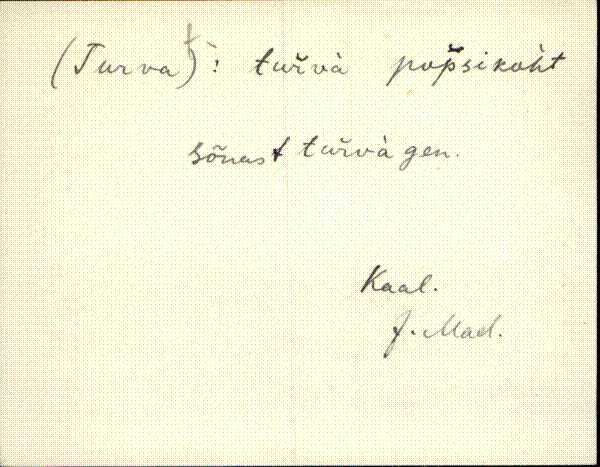 (Turva): tuřvà popsikoht
sõnast tuřvà gen.
Kaal.
J. Mad.